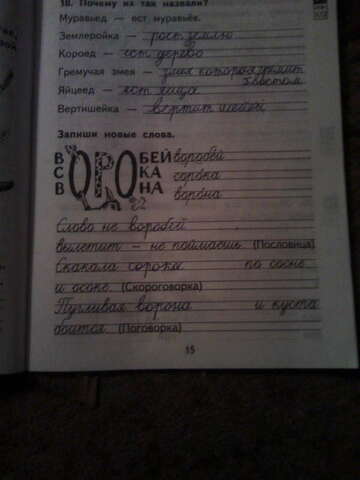 18. Почему их так назвали?
Муравьед — ест муравьёв.
Землеройка — роет землю
Короед — ест дерево
Гремучая змея — змея которая гремит
хвостом
Яйцеед — ест яйца
Вертишейка — вертит шеей
Запиши новые слова.
ВОРОБЕЙ воробей
СОРОКА сорока
ВОРОНА ворона
Слово не воробей
вылетит — не поймаешь. (Пословица)
Скакала сорока по сосне
и осоке. (Скороговорка)
Пугливая ворона и куста
боится (Поговорка)
15